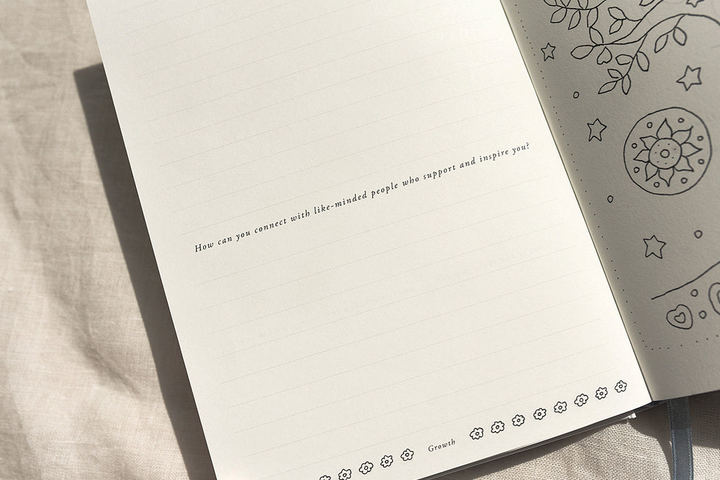 How can you connect with like-minded people who support and inspire you?
Growth